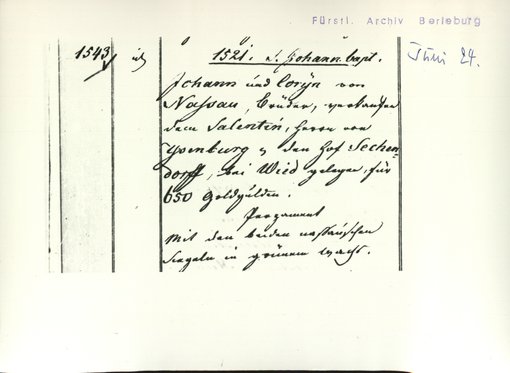 Fürstl. Archiv Berleburg
1543
1521. s. Johann bapt.
Juni 24.
Johann und Coryn von
Nassau, Brüder, verkaufen
dem Salentin, Herrn von
Ysenburg den Hof Sechen-
dorff, bei Wied gelegen, für
650 Goldgulden.
Pergament
Mit den beiden nassauischen
Siegeln in grünem Wachs.